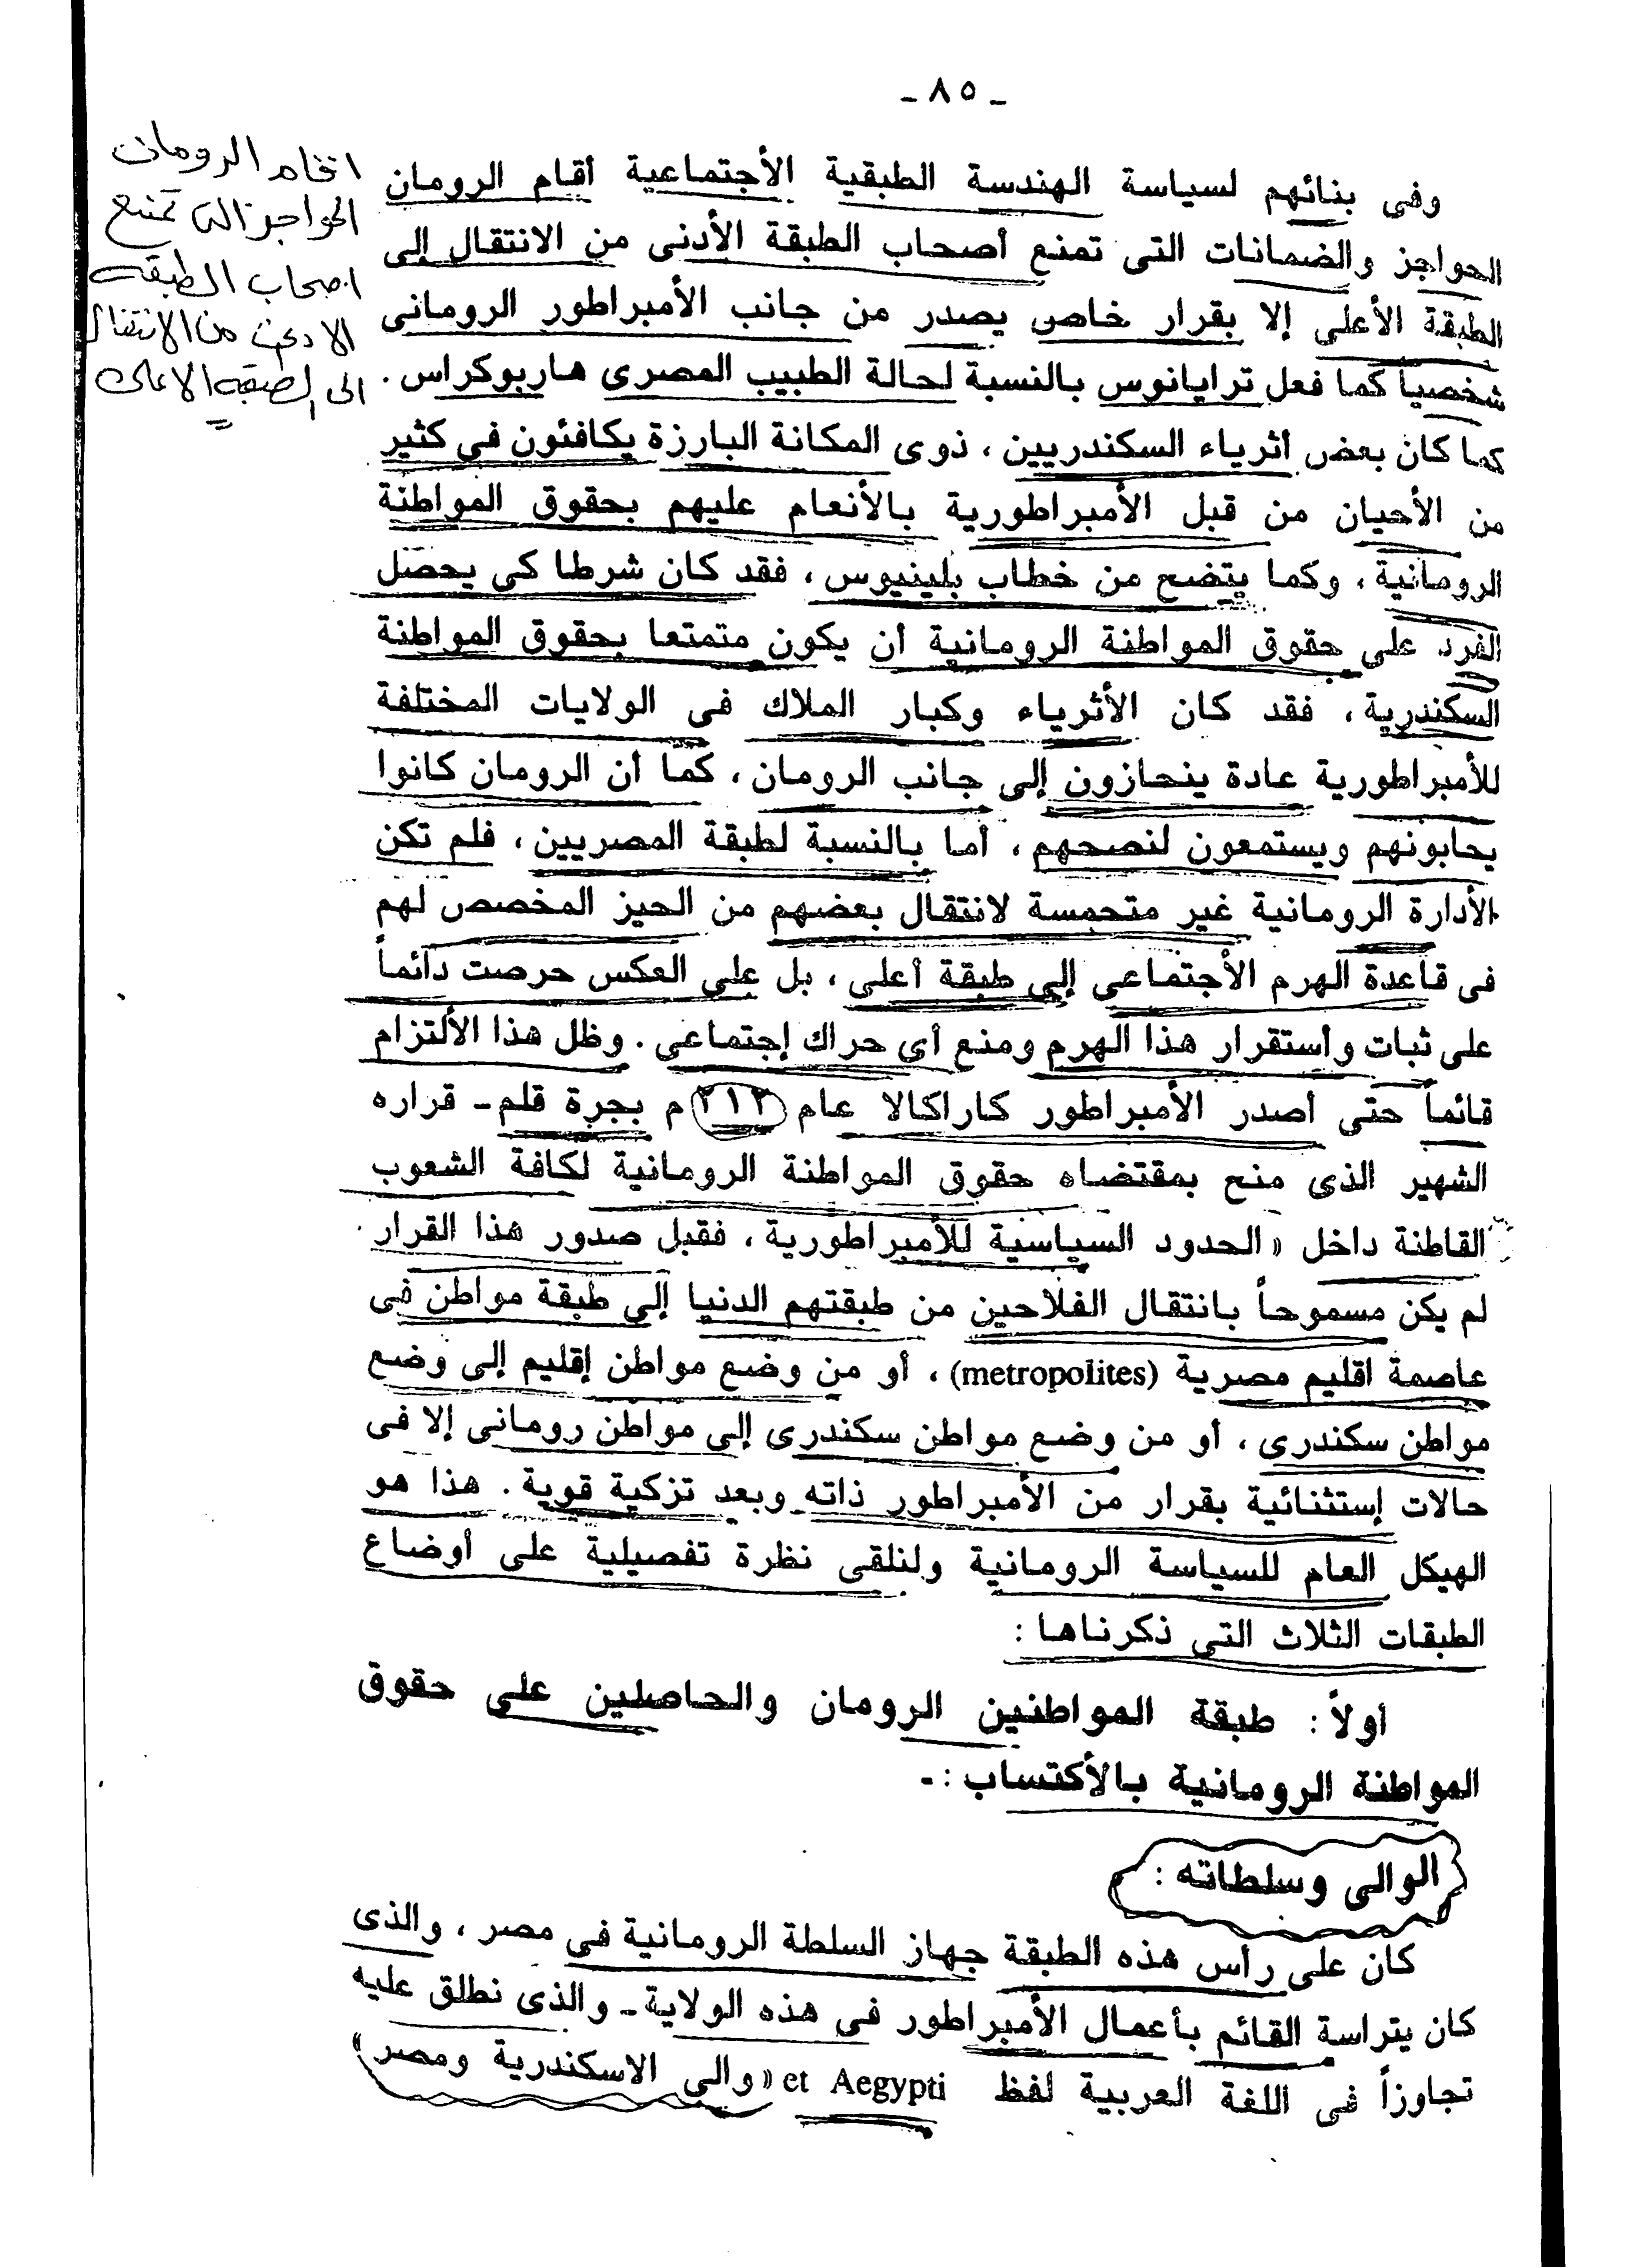 - ٨٥ -
وفى بنائهم لسياسة الهندسة الطبقية الأجتماعية أقام الرومان
الحواجز والضمانات التى تمنع أصحاب الطبقة الأدنى من الانتقال إلى
الطبقة الأعلى إلا بقرار خاص يصدر من جانب الأمبراطور الرومانى
شخصياً كما فعل ترايانوس بالنسبة لحالة الطبيب المصرى هاربوكراس .
كما كان بعض أثرياء السكندريين ، ذوى المكانة البارزة يكافئون فى كثير
من الأحيان من قبل الأمبراطورية بالأنعام عليهم بحقوق المواطنة
الرومانية ، وكما يتضح من خطاب بلينيوس ، فقد كان شرطا كى يحصل
الفرد على حقوق المواطنة الرومانية أن يكون متمتعا بحقوق المواطنة
السكندرية ، فقد كان الأثرياء وكبار الملاك فى الولايات المختلفة
للأمبراطورية عادة ينحازون إلى جانب الرومان ، كما أن الرومان كانوا
يحابونهم ويستمعون لنصحهم ، أما بالنسبة لطبقة المصريين ، فلم تكن
الأدارة الرومانية غير متحمسة لانتقال بعضهم من الحيز المخصص لهم
فى قاعدة الهرم الأجتماعى إلى طبقة أعلى ، بل على العكس حرصت دائماً
على ثبات وأستقرار هذا الهرم ومنع أى حراك إجتماعى . وظل هذا الألتزام
قائماً حتى أصدر الأمبراطور كاراكالا عام ٢١٢ م بجرة قلم - قراره
الشهير الذى منح بمقتضاه حقوق المواطنة الرومانية لكافة الشعوب
القاطنة داخل « الحدود السياسية للأمبراطورية ، فقبل صدور هذا القرار
لم يكن مسموحاً بانتقال الفلاحين من طبقتهم الدنيا إلى طبقة مواطن فى
عاصمة اقليم مصرية (metropolites) ، أو من وضع مواطن إقليم إلى وضع
مواطن سكندرى ، أو من وضع مواطن سكندرى إلى مواطن رومانى إلا فى
حالات إستثنائية بقرار من الأمبراطور ذاته وبعد تزكية قوية . هذا هو
الهيكل العام للسياسة الرومانية ولنلقى نظرة تفصيلية على أوضاع
الطبقات الثلاث التى ذكرناها :
أولاً : طبقة المواطنين الرومان والحاصلين على حقوق
المواطنة الرومانية بالأكتساب : -
الوالى وسلطاته :
كان على رأس هذه الطبقة جهاز السلطة الرومانية فى مصر ، والذى
كان يتراسة القائم بأعمال الأمبراطور فى هذه الولاية - والذى نطلق عليه
تجاوزاً فى اللغة العربية لفظ et Aegypti « والى الاسكندرية ومصر »
الرومان
الحواجز التى تمنع
اصحاب الطبقه
الادنى من الانتقال
الى الطبقه الاعلى